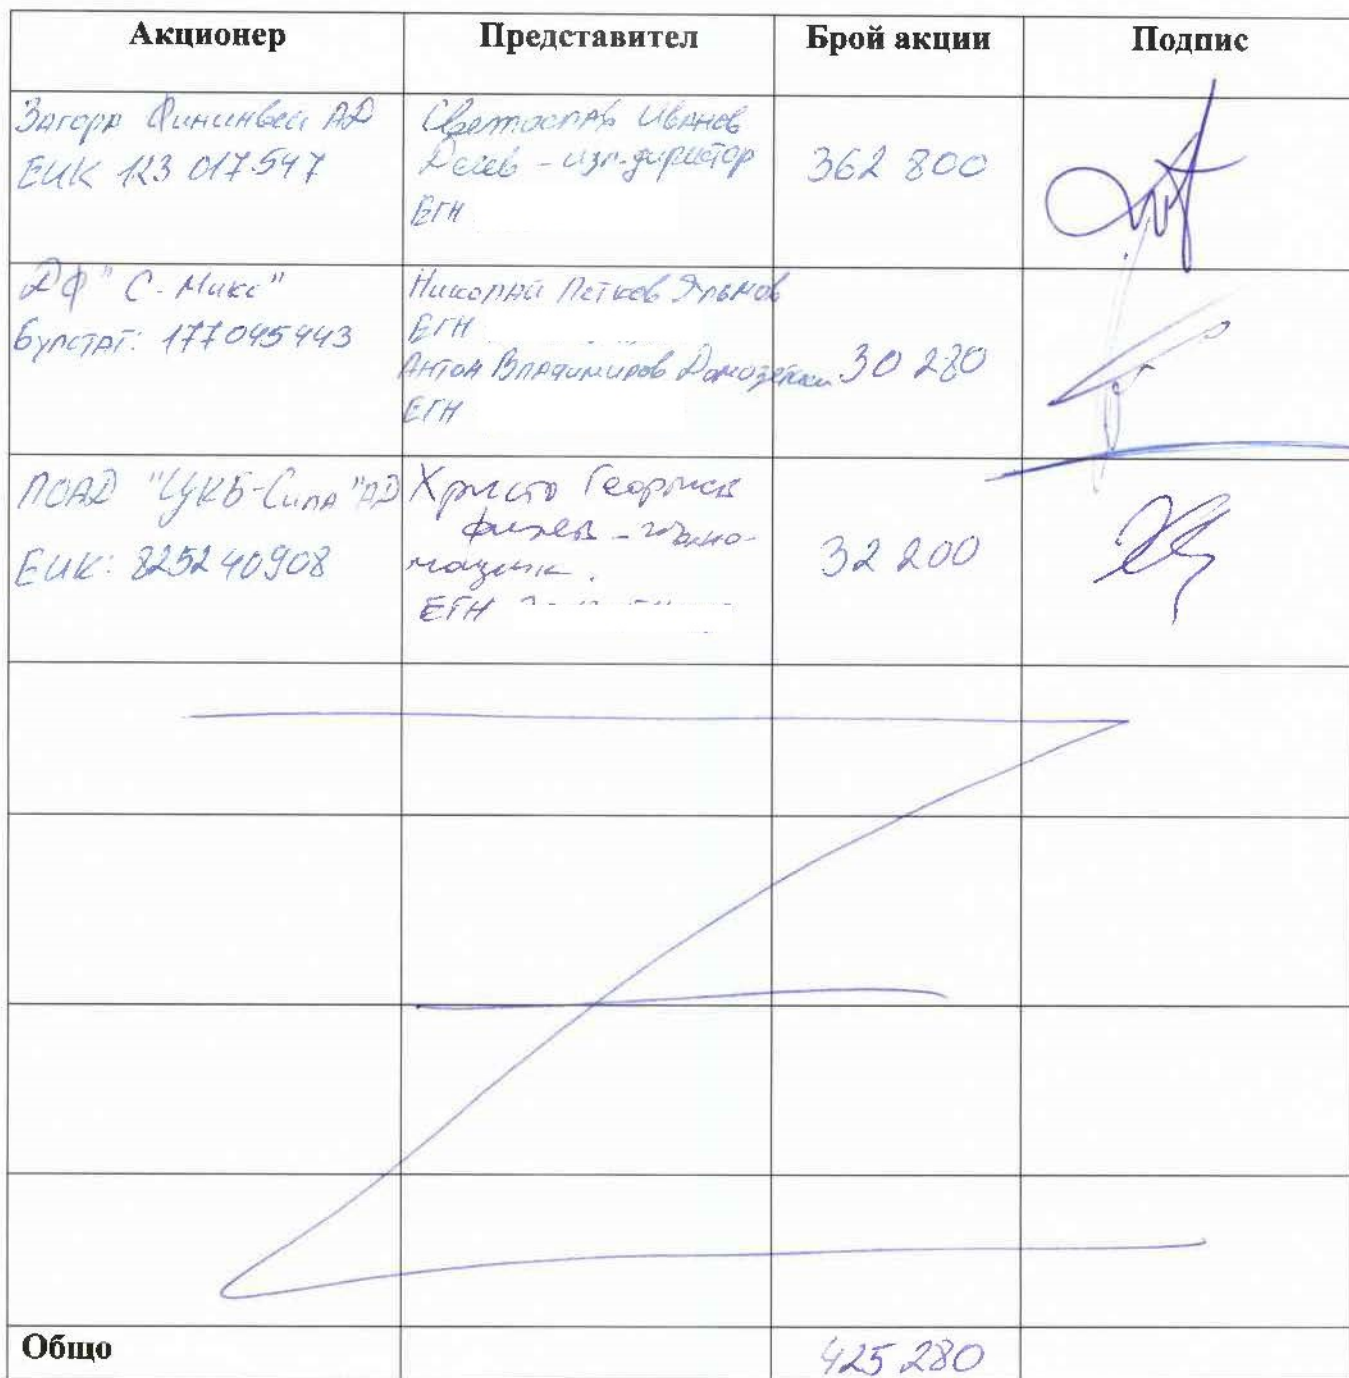 Акционер Представител Брой акции Подпис
Загора Фининвест АД
ЕИК 123 017 547
Светослав Иванов
Десев - изп. директор
ЕГН
362 800
ДФ "С-Микс"
Булстат: 177045443
Николай Петков Ялъмов
ЕГН
Антон Владимиров Домозетски
ЕГН
30 280
ПОАД "ЦКБ-Сила" АД
ЕИК: 825240908
Христо Георгиев
ЕГН
32 200
Общо 425 280